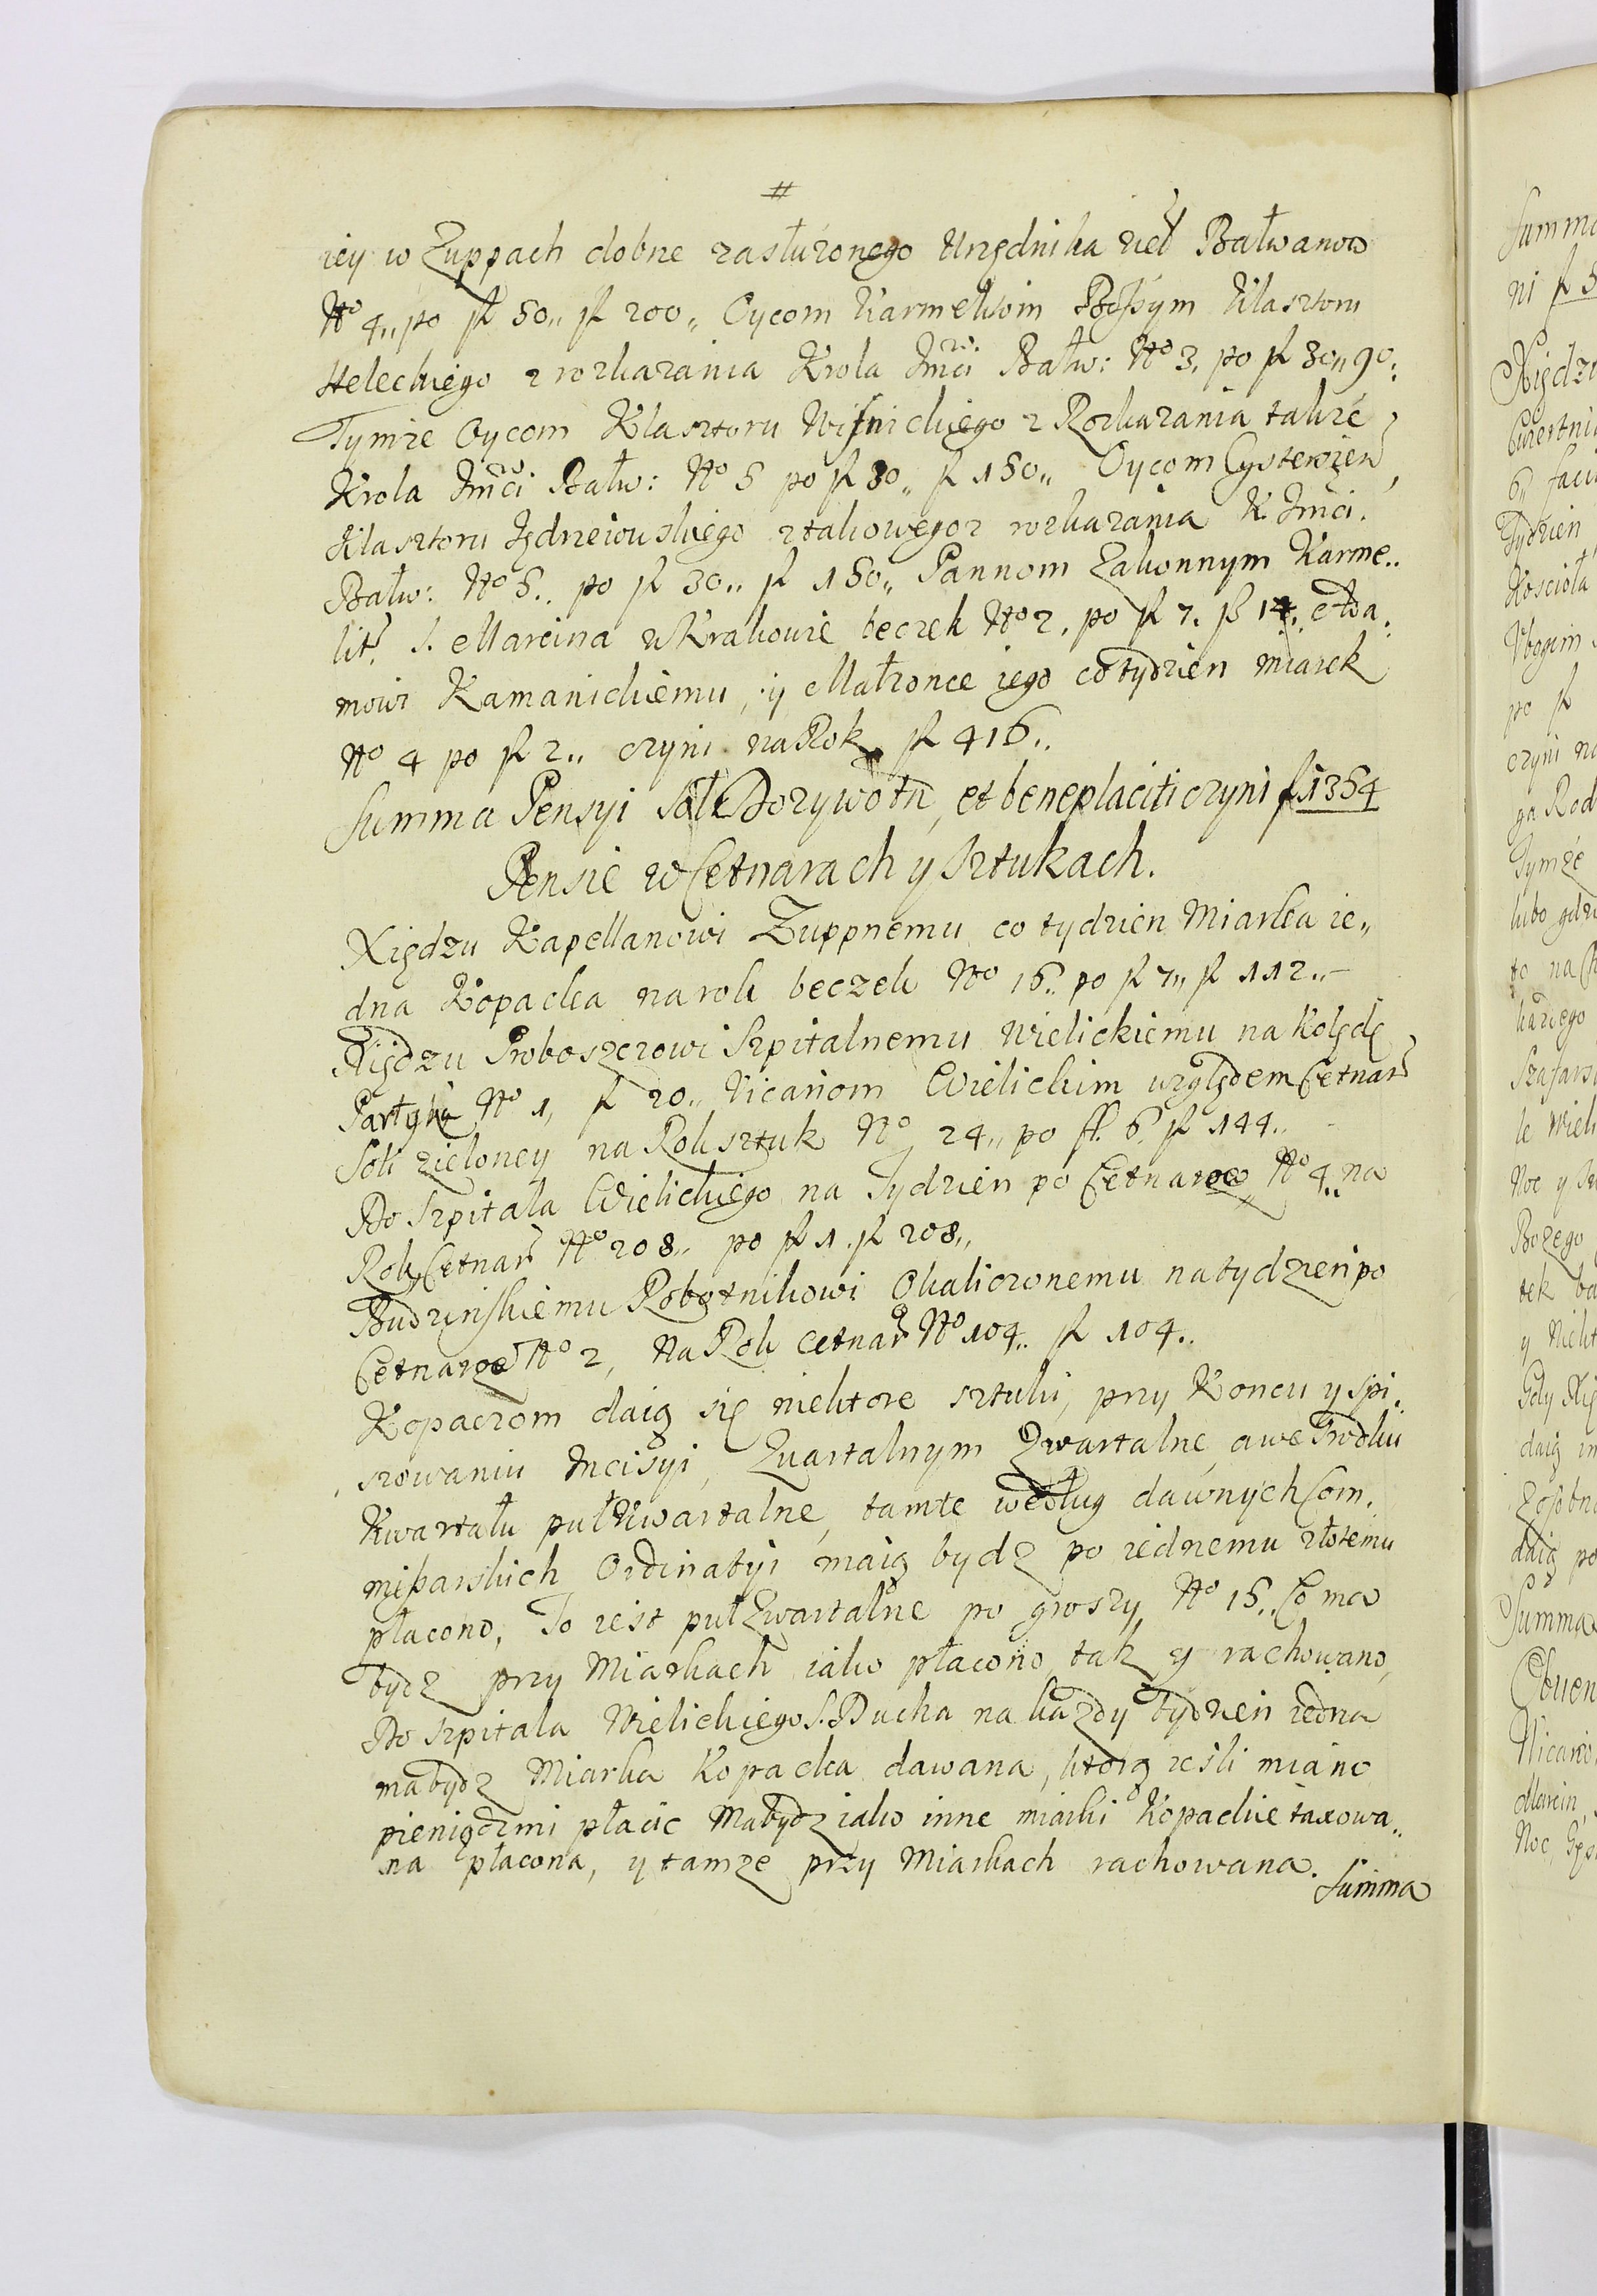 #
iey w Zuppach dobrze zasłużonego Urzędnika Bałwanow
No 4,, po fl 50,, fl 200,, Oycom Karmelitom Bossym Klasztoru
z rozkazania Krola Jmci Bałw: No 3. po fl 30,, 90.
Tymże Oycom Klasztoru Wisnickiego z Rozkazania także
Krola Jmci Bałw: No 5 po fl 30,, fl 150,, Oycom Cysterzien
Klasztoru Jędrzeiowskiego z takowegoz rozkazania K. Jmci.
Bałw: No 5.. po fl 30.. fl 150,, Pannom Zakonnym Karme..
lit. S. Marcina w Krakowie beczek No 2. po fl 7. fl 14.. Ada.
mowi Kamanickiemu, y Małzonce iego co tydzien miarek
No 4 po fl 2,, czyni na Rok fl 416..
Summa Pensyi Soli Dozywotn, et beneplaciti czyni fl 1354
Pensie w Cetnarach y Sztukach.
Xiędzu Kapellanowi Zuppnemu co tydzien Miarka ie,,
dna Kopacka na rok beczek No 16.. po fl 7,, fl 112,,
Xiędzu Proboszczowi Szpitalnemu Wielickiemu na Kolędę
Partyka No 1, fl 20.. Vicariom Wielickim względem Cetnar
Soli zieloney na Rok sztuk No 24,, po fl. 6. fl 144..
Do Szpitala Wielickiego na Tydzien po Cetnarow No 4.. na
Rok Cetnar No 208.. po fl 1. fl 208,,
Budzinskiemu Robotnikowi Okaliczonemu na tydzien po
Cetnarze No 2, Na Rok Cetnar No 104.. fl 104..
Kopaczom daią się niektore sztuki, przy Koncu y spi..
sowaniu Incisyi, Quartalnym Qwartalne, a we Srodku
Kwartału pułkwartalne, tamte według dawnych Com.
missarskich Ordinatyi maią bydz po iednemu złotemu
płacono, To iest pułqwartalne po groszy No 15.. Co ma
bydz przy Miarkach iako płacono tak y rachowano,
Do Szpitala Wielickiego S. Ducha na każdy tydzien iedna
ma bydz Miarka Kopacka dawana, ktorą iesli miano
pieniądzmi płacic Ma bydz iako inne miarki Kopackie taxowa..
na płacona, y tamze przy Miarkach rachowana.
Summa